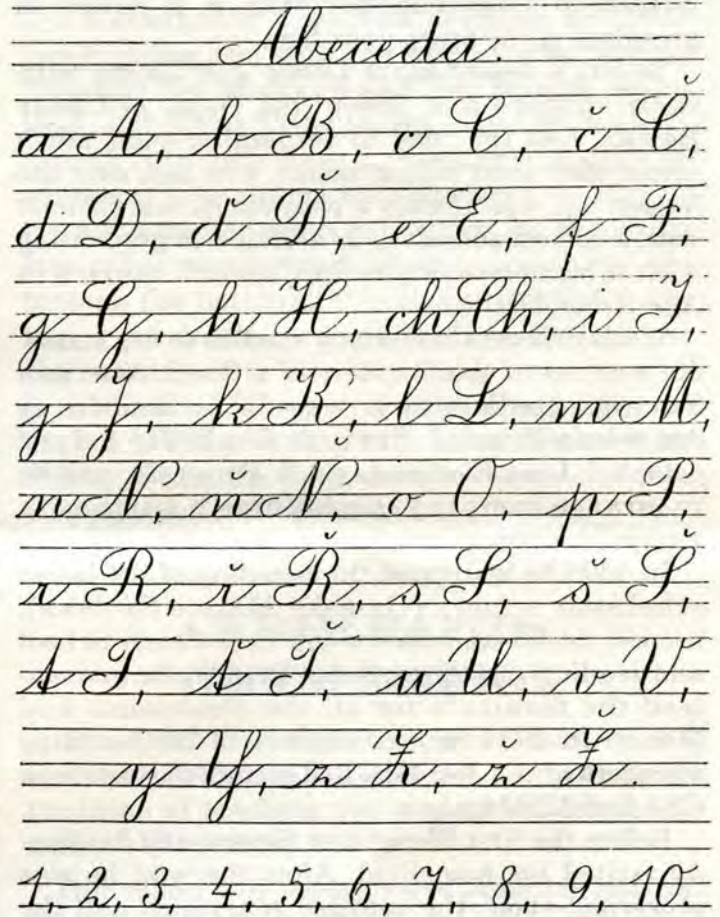 Abeceda.
a A, b B, c C, č Č,
d D, ď Ď, e E, f F,
g G, h H, ch Ch, i I,
j J, k K, l L, m M,
n N, ň Ň, o O, p P,
r R, ř Ř, s S, š Š,
t T, ť Ť, u U, v V,
y Y, z Z, ž Ž.
1, 2, 3, 4, 5, 6, 7, 8, 9, 10.